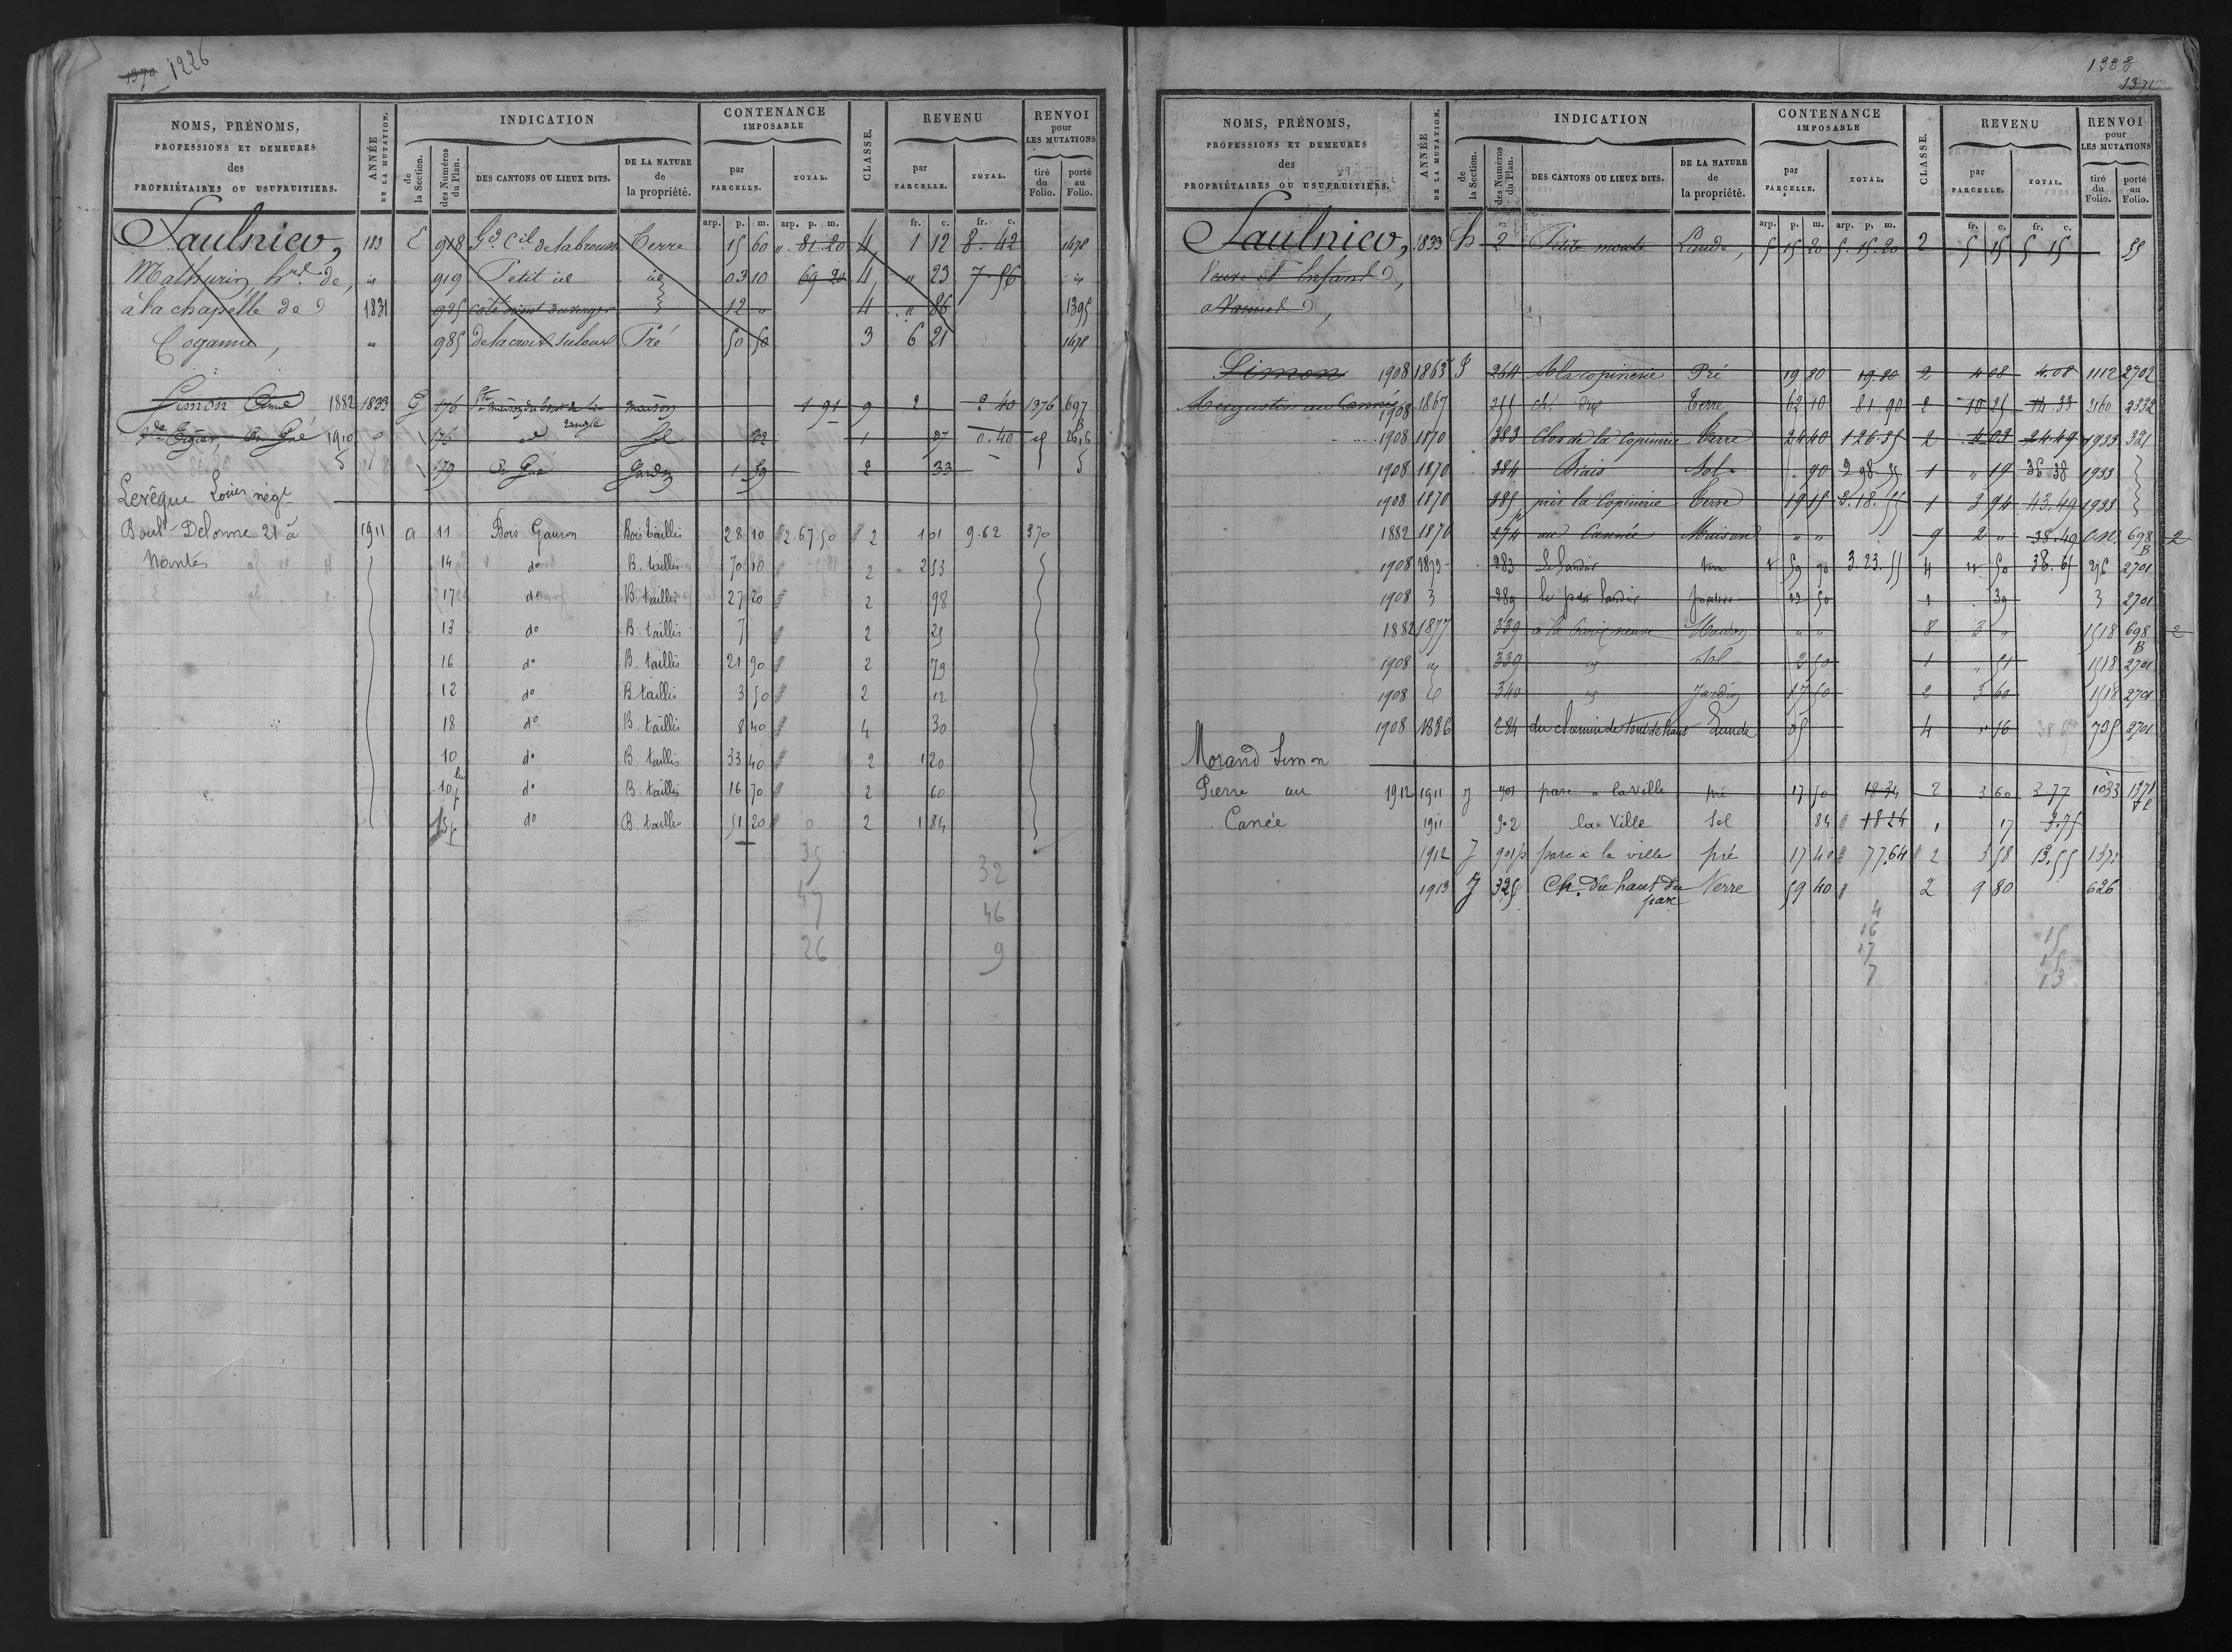 1370 1226
NOMS, PRÉNOMS, PROFESSIONS ET DEMEURES des PROPRIÉTAIRES OU USUFRUITIERS. ANNÉE DE LA MUTATION. INDICATION CONTENANCE IMPOSABLE CLASSE. REVENU RENVOI pour LES MUTATIONS
de la Section. des Numéros du Plan. DES CANTONS OU LIEUX DITS. DE LA NATURE de la propriété. par PARCELLE. TOTAL. par PARCELLE. TOTAL. tiré du Folio. porté au Folio.
arp. p. m. arp. p. m. fr. c. fr. c.
Saulnier, 183 E 918 Terre 15 60 " 81.20 4 1 12 8.42 1478
Mathurin, de, id 919 Petit id id 03 10 69 20 4 " 23 7.56 id
à la chapelle de 1831 925 12 " 4 " 86 1395
985 de la croix Pré 50 50 3 6 21 1478
Simon Aimé 1882 1833 G 176 maison 1 91 9 2 2 40 1376 697
1910 176 id Sol 32 1 07 0.40 id 2616
179 Jardin 1 59 2 33
Levêque Louis négt
Boult Delorme 21 à 1911 a 11 Bois Gauron Bois taillis 28 10 2.67 50 2 1 01 9.62 370
Nantes 14 do B. taillis 70 10 2 2 53
17 do B. taillis 27 20 2 98
13 do B. taillis 7 2 25
16 do B. taillis 21 90 2 79
12 do B. taillis 3 50 2 12
18 do B. taillis 8 40 4 30
10 do B. taillis 33 40 2 1 20
10 do B. taillis 16 70 2 60
15p do B. taillis 51 20 2 1 84
35 32
47 46
26 9
1328
1371
NOMS, PRÉNOMS, PROFESSIONS ET DEMEURES des PROPRIÉTAIRES OU USUFRUITIERS. ANNÉE DE LA MUTATION. INDICATION CONTENANCE IMPOSABLE CLASSE. REVENU RENVOI pour LES MUTATIONS
de la Section. des Numéros du Plan. DES CANTONS OU LIEUX DITS. DE LA NATURE de la propriété. par PARCELLE. TOTAL. par PARCELLE. TOTAL. tiré du Folio. porté au Folio.
arp. p. m. arp. p. m. fr. c. fr. c.
Saulnier, 1833 h 2 Petite Lande, 5 15 20 5.15.20 2 5 15 5 15 55
Veuve et Enfans
Simon 1908 1863 J 264 A la copinerie Pré 19 80 19.80 2 4 08 4.08 1112 2702
Augustin au Cannée 1908 1867 255 Terre 62 10 81.90 2 10 25 14.33 2160 2332
1908 1870 383 Clos de la Copinerie Terre 24 40 1 26.35 2 4 03 24.49 1933 321
1908 1870 384 Biais Sol 90 2 98.35 1 " 19 36.38 1933
1908 1870 385 près la Copinerie Terre 19 15 3.18.55 1 3 94 43.49 1933
1882 1870 274 au Cannée Maison " " 9 2 " 38.49 C.N. 698 2
1908 1872 283 Terre 59 90 3.23.55 4 50 38.65 2701
1908 289 22 50 1 39 2701
1882 1877 339 Maison " " 8 3 " 1518 698 2
1908 id 339 id Sol 2 50 1 " 51 1518 2701
1908 id 340 id Jardin 17 50 2 3 60 1518 2701
1908 1886 284 du chemin de Lande 05 4 " 16 725 2701
Morand Simon
Pierre au 1912 1911 J 901 parc a la ville pré 17 50 18 34 2 3 60 3.77 1033 1371
Canée 1911 902 la Ville Sol 84 18 24 1 17 3.75
1912 J 901p parc a la ville pré 17 40 77.64 2 3 58 13.55 1371
1913 J 325 Ch. du haut du parc Terre 59 40 2 9 80 626
4
16 15
17 15
7 13